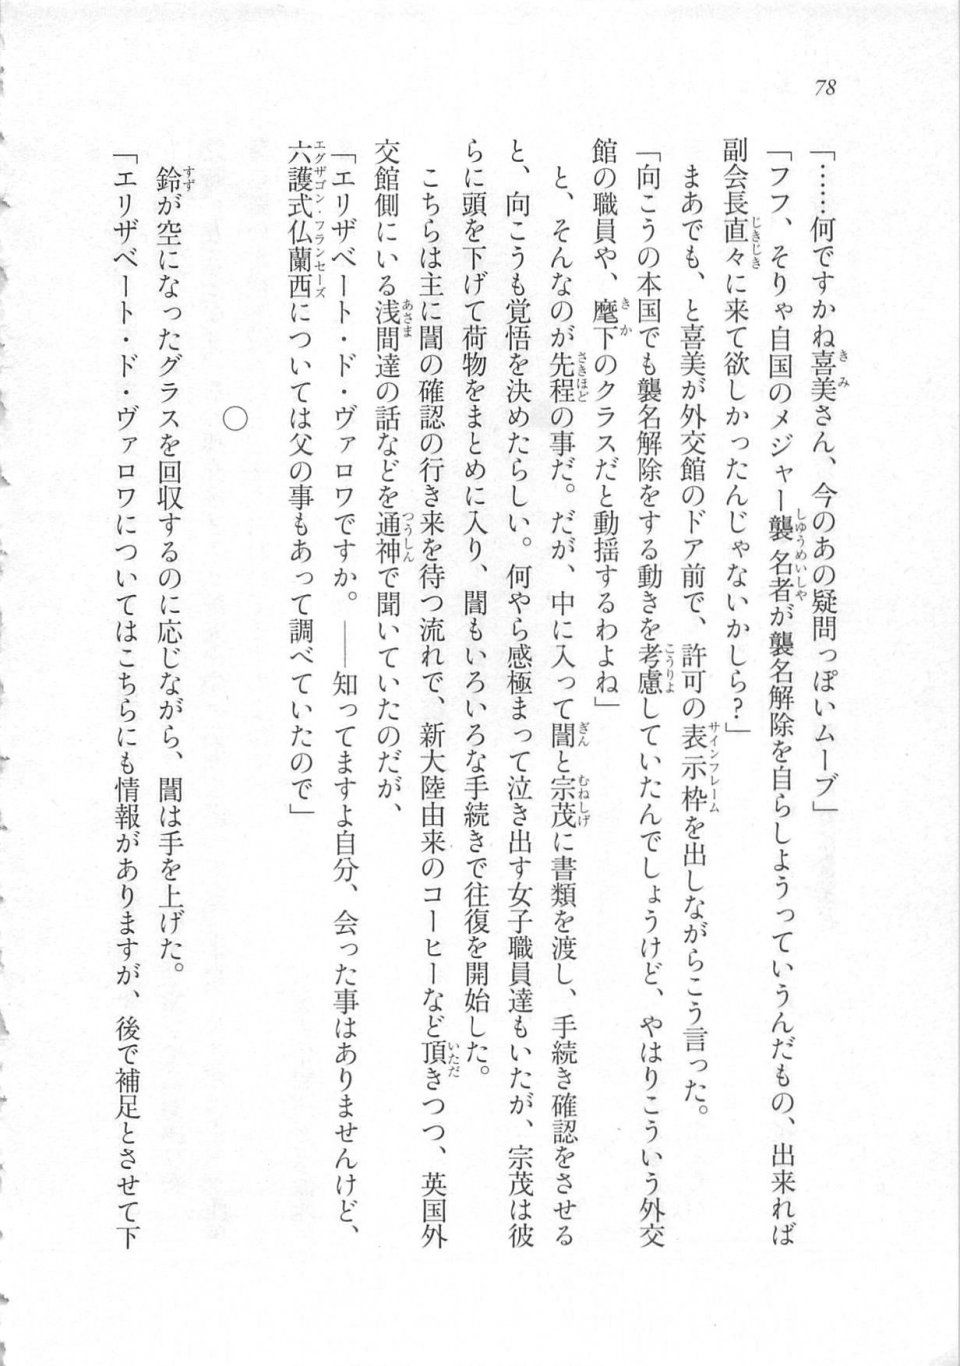 78
「……何ですかね喜美さん、今のあの疑問っぽいムーブ」
「フフ、そりゃ自国のメジャー襲名者が襲名解除を自らしようっていうんだもの、出来れば
副会長直々に来て欲しかったんじゃないかしら?」
まあでも、と喜美が外交館のドア前で、許可の表示枠を出しながらこう言った。
「向こうの本国でも襲名解除をする動きを考慮していたんでしょうけど、やはりこういう外交
館の職員や、麾下のクラスだと動揺するわよね」
と、そんなのが先程の事だ。だが、中に入って誾と宗茂に書類を渡し、手続き確認をさせる
と、向こうも覚悟を決めたらしい。何やら感極まって泣き出す女子職員達もいたが、宗茂は彼
らに頭を下げて荷物をまとめに入り、誾もいろいろな手続きで往復を開始した。
こちらは主に誾の確認の行き来を待つ流れで、新大陸由来のコーヒーなど頂きつつ、英国外
交館側にいる浅間達の話などを通神で聞いていたのだが、
「エリザベート・ド・ヴァロワですか。――知ってますよ自分、会った事はありませんけど、
六護式仏蘭西については父の事もあって調べていたので」
○
鈴が空になったグラスを回収するのに応じながら、誾は手を上げた。
「エリザベート・ド・ヴァロワについてはこちらにも情報がありますが、後で補足とさせて下